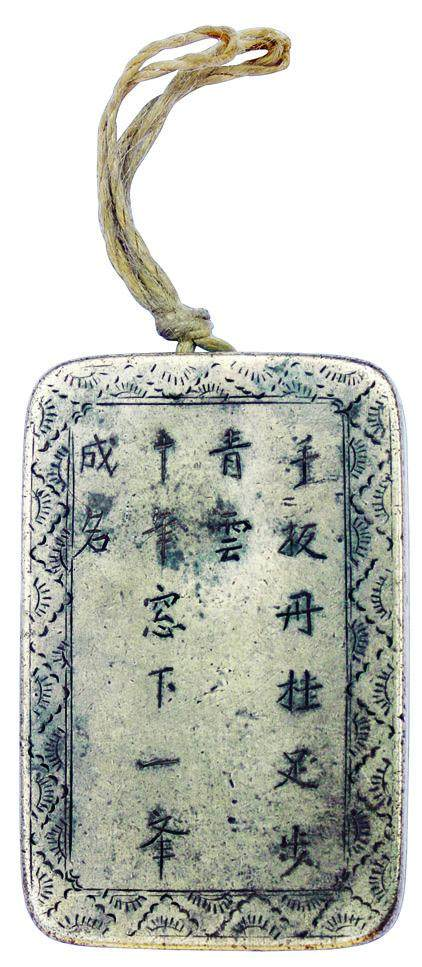 手扳丹桂足步
青雲
十年窓下一举
成名